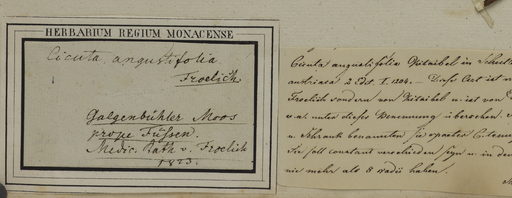 HERBARIUM REGIUM MONACENSE
Cicuta angustifolia
Froelich
Galgenbühler Moos
prope Füssen.
Medic. Rath v. Froelich
1823.
Cicuta angustifolia Kitaibel in Schult
austriaca 2 Edit. I. 1204. — Diese Art ist
Froelich sondern von Kitaibel u. ist von
unter dieser Benennung
u. Schrank benannten
Sie soll constant verschieden seyn u. in den
nie mehr als 8 radii haben.